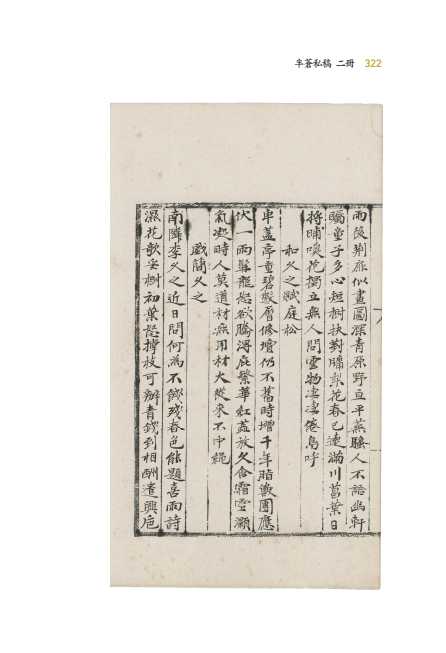 半蒼私稿 二冊 322
雨後荆扉似畫圖深青原野亘平蕪騷人不語幽軒
矚童子多心短樹扶對牖梨花春已遠滿川菖葉日
將晡喚花獨立無人問雲物凄凄倦鳥呼
和久之賦庭松
車蓋亭童碧數層修壇仍不舊時增千年脂瀲團應
伏一雨髯龍起欲騰凋庇繁華紅蓋放久含霜雪灝
氣凝時人莫道材無用材大從來不中繩
戲簡久之
南隣李久之近日問何為不餞殘春色能題喜雨詩
濕花歌妥樹初葉整撐枝可辦青錢到相酬遣興卮